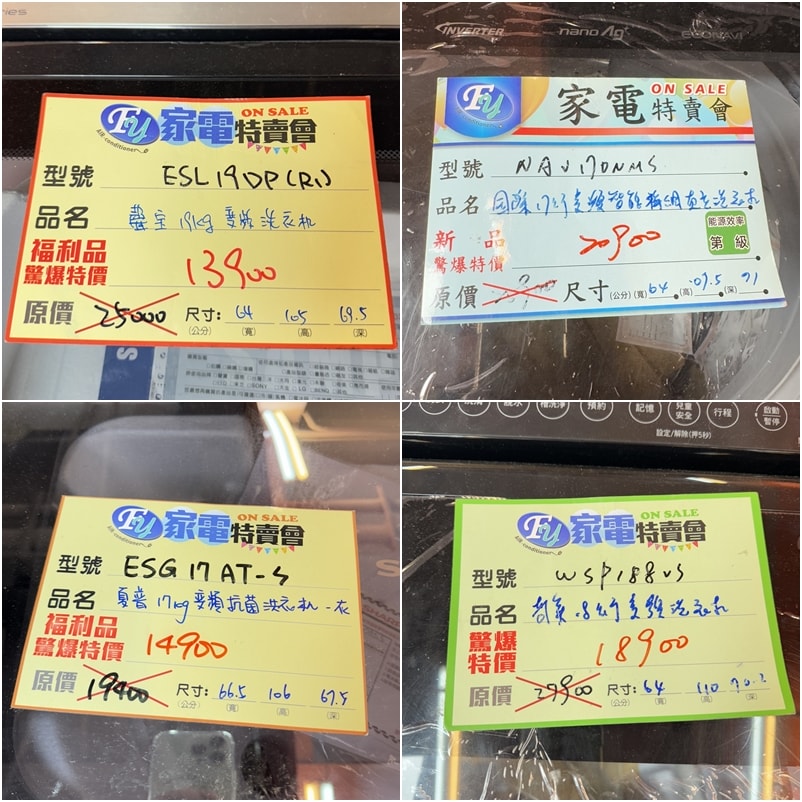 FY 家電特賣會 ON SALE
AIR-conditioner
型號 ESL19DP(R1)
品名 聲宝 19kg 变频 洗衣机
福利品
驚爆特價 13900
原價 25000 尺寸: 64 105 69.5
(公分) (寬) (高) (深)
INVERTER nanoAg+ ECONAVI
FY 家電特賣會 ON SALE
型號 NAV170NMS
品名 国際 17
能源效率
第 級
新品
驚爆特價 20900
原價 尺寸(公分)(寬) 64 (高) (深) 71
FY 家電特賣會 ON SALE
AIR-conditioner
型號 ESG17AT-S
品名 夏普 17kg 变頻抗菌洗衣机
福利品
驚爆特價 14900
原價 19400 尺寸: 66.5 106 67.5
(公分) (寬) (高) (深)
脫水 槽洗淨 預約 記憶 兒童安全 行程 啟動暫停
設定/解除(押5秒)
FY 家電特賣會 ON SALE
AIR-conditioner
型號 WSP188VS
品名 洗衣机
驚爆
特價 18900
原價 27900 尺寸: 64 110
(公分) (寬) (高) (深)